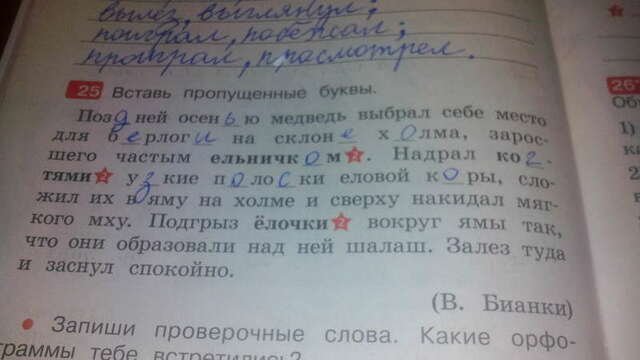 вылез, выглянул;
поиграл, побежал;
проиграл, просмотрел.
25 Вставь пропущенные буквы.
Поздней осенью медведь выбрал себе место
для берлоги на склоне холма, зарос-
шего частым ельничком 2. Надрал ког-
тями 2 узкие полоски еловой коры, сло-
жил их в яму на холме и сверху накидал мяг-
кого мху. Подгрыз ёлочки 2 вокруг ямы так,
что они образовали над ней шалаш. Залез туда
и заснул спокойно.
(В. Бианки)
• Запиши проверочные слова. Какие орфо-
граммы тебе встретились?
26
1)
2)